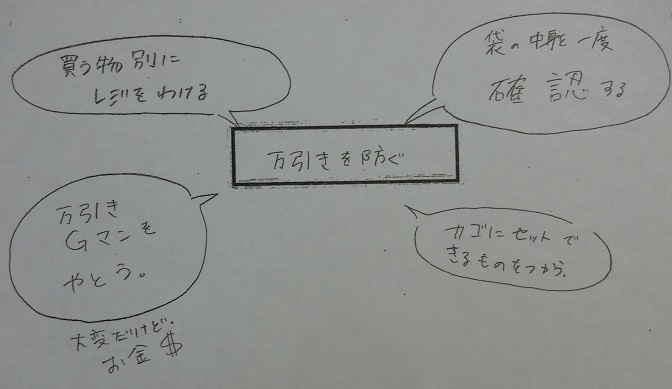 買う物別に
レジをわける
袋の中身を一度
確認する
万引きを防ぐ
万引き
Gマンを
やとう。
大変だけど、
お金 $
カゴにセットで
きるものをつかう。